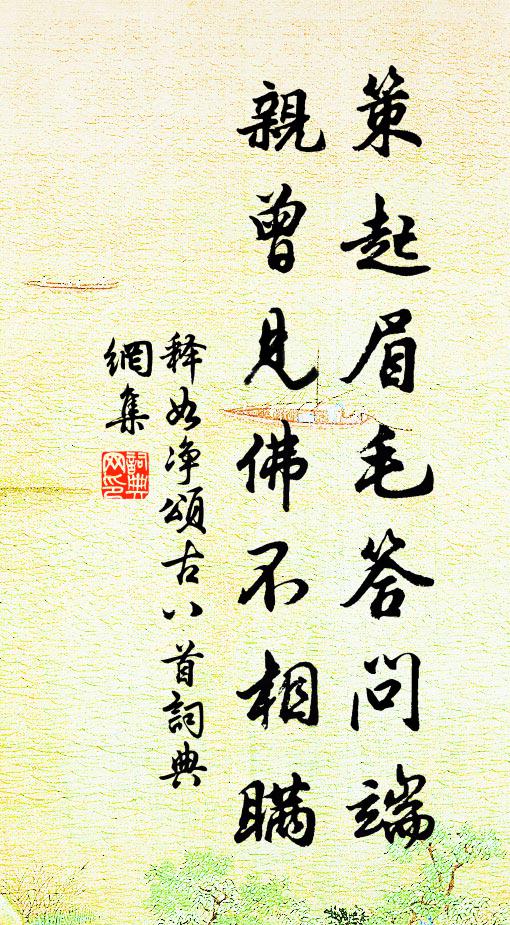 策起眉毛答问端
親曾見佛不相瞞
释如净頌古八首詞典
網集
詞典
网印